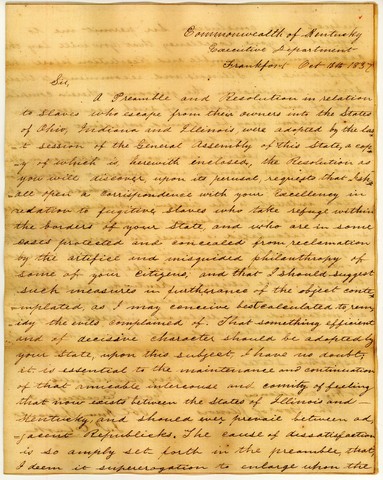 Commonwealth of Kentucky
Executive Department
Frankfort Oct 1837
Sir,
A Preamble and Resolution in relation
to slaves who escape from their owners into the States
of Ohio, Indiana and Illinois were adopted by the las
t session of the General Assembly of this State, a cop
y of which is herewith enclosed, the Resolution as
you will discover, upon its perusal, requests that I sh
all open a correspondence with your Excellency in
relation to fugitive slaves who take refuge within
the borders of your State, and who are in some
cases protected and concealed from reclamation
by the artifice and misguided philanthropy of
some of your citizens, and that I should suggest
such measures in furtherance of the object conte
mplated, as I may conceive best calculated to rem
idy the evils complained of. That something efficient
and of decisive character should be adopted by
your State, upon this subject, I have no doubt,
it is essential to the maintenance and continuation
of that amicable intercouse and comity of feeling
that now exists between the States of Illinois and
Kentucky and should ever prevail between ad
jacent Republicks. The cause of dissatisfaction
is so amply set forth in the preamble, that
I deem it supererogation to enlarge upon the